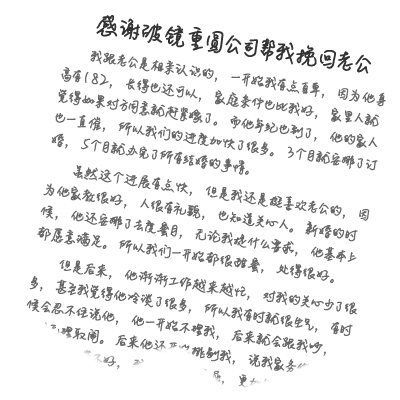 感谢破镜重圆公司帮我挽回老公
我跟老公是相亲认识的，一开始我有点自卑，因为他身
高有182，长得也还可以，家庭条件也比我好，家里人就
觉得如果对方同意就赶紧嫁了。而他年纪也到了，他的家人
也一直催，所以我们的进度加快了很多。3个月就安排了订
婚，5个月就办完了所有结婚的事情。
虽然这个进展有点快，但是我还是挺喜欢老公的，因
为他家教很好，人很有礼貌，也知道关心人。新婚的时
候，他还安排了去度蜜月，无论我提什么要求，他基本上
都愿意满足。所以我们一开始都很甜蜜，处得很好。
但是后来，他渐渐工作越来越忙，对我的关心少了很
多，甚至我觉得他冷淡了很多，所以我有时就很生气，有时
候会忍不住说他，他一开始不理我，后来就会跟我吵，
理取闹。后来他还开始挑剔我，说我家务
不好，